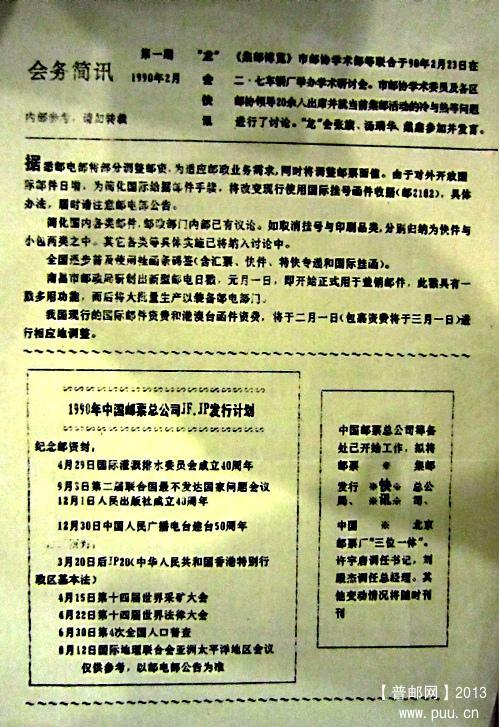 会务简讯
第一期
1990年2月
内部参考，请勿转载
"龙"
会
快
讯
《集邮博览》市邮协学术部等联合于90年2月23日在
二·七车辆厂举办学术研讨会。市邮协学术委员及各区
邮协领导20余人出席并就当前集邮活动的冷与热等问题
进行了讨论。"龙"会张旗、杨瑞华、 参加并发言。
据悉邮电部将部分调整邮资，为适应邮政业务需求，同时将调整邮票面值。由于对外开放国
际邮件日增，为简化国际给据邮件手续，将改变现行使用国际挂号函件收据(邮2102)，具体
办法，届时请注意邮电部公告。
简化国内各类邮件，邮政部门内部已有议论。如取消挂号与印刷品类，分别归纳为快件与
小包两类之中。其它各类等具体实施已将纳入讨论中。
全国逐步普及使用挂函条码签(含汇票、快件、特快专递和国际挂函)。
南昌市邮政局研制出新型邮电日戳，元月一日，即开始正式用于盖销邮件，此戳具有一
戳多用功能，而后将大批量生产以装备邮电部门。
我国现行的国际邮件资费和港澳台函件资费，将于二月一日(包裹资费将于三月一日)进
行相应地调整。
1990年中国邮票总公司JF、JP发行计划
纪念邮资封：
4月29日国际灌溉排水委员会成立40周年
9月3日第二届联合国最不发达国家问题会议
12月1日人民出版社成立40周年
12月30日中国人民广播电台建台50周年
3月20日后JP20(中华人民共和国香港特别行
政区基本法)
4月15日第十四届世界采矿大会
4月22日第十四届世界法律大会
6月30日第4次全国人口普查
8月12日国际地理联合会亚洲太平洋地区会议
仅供参考，以邮电部公告为准
中国邮票总公司筹备
处已开始工作，拟将
邮票 ※ 集邮
发行 ※快※ 总公
局、 ※讯※ 司、
中国 ※ 北京
邮票厂"三位一体"。
许宇唐调任书记，刘
殿杰调任总经理。其
他变动情况将随时刊
刊
【普邮网】2013
www.puu.cn